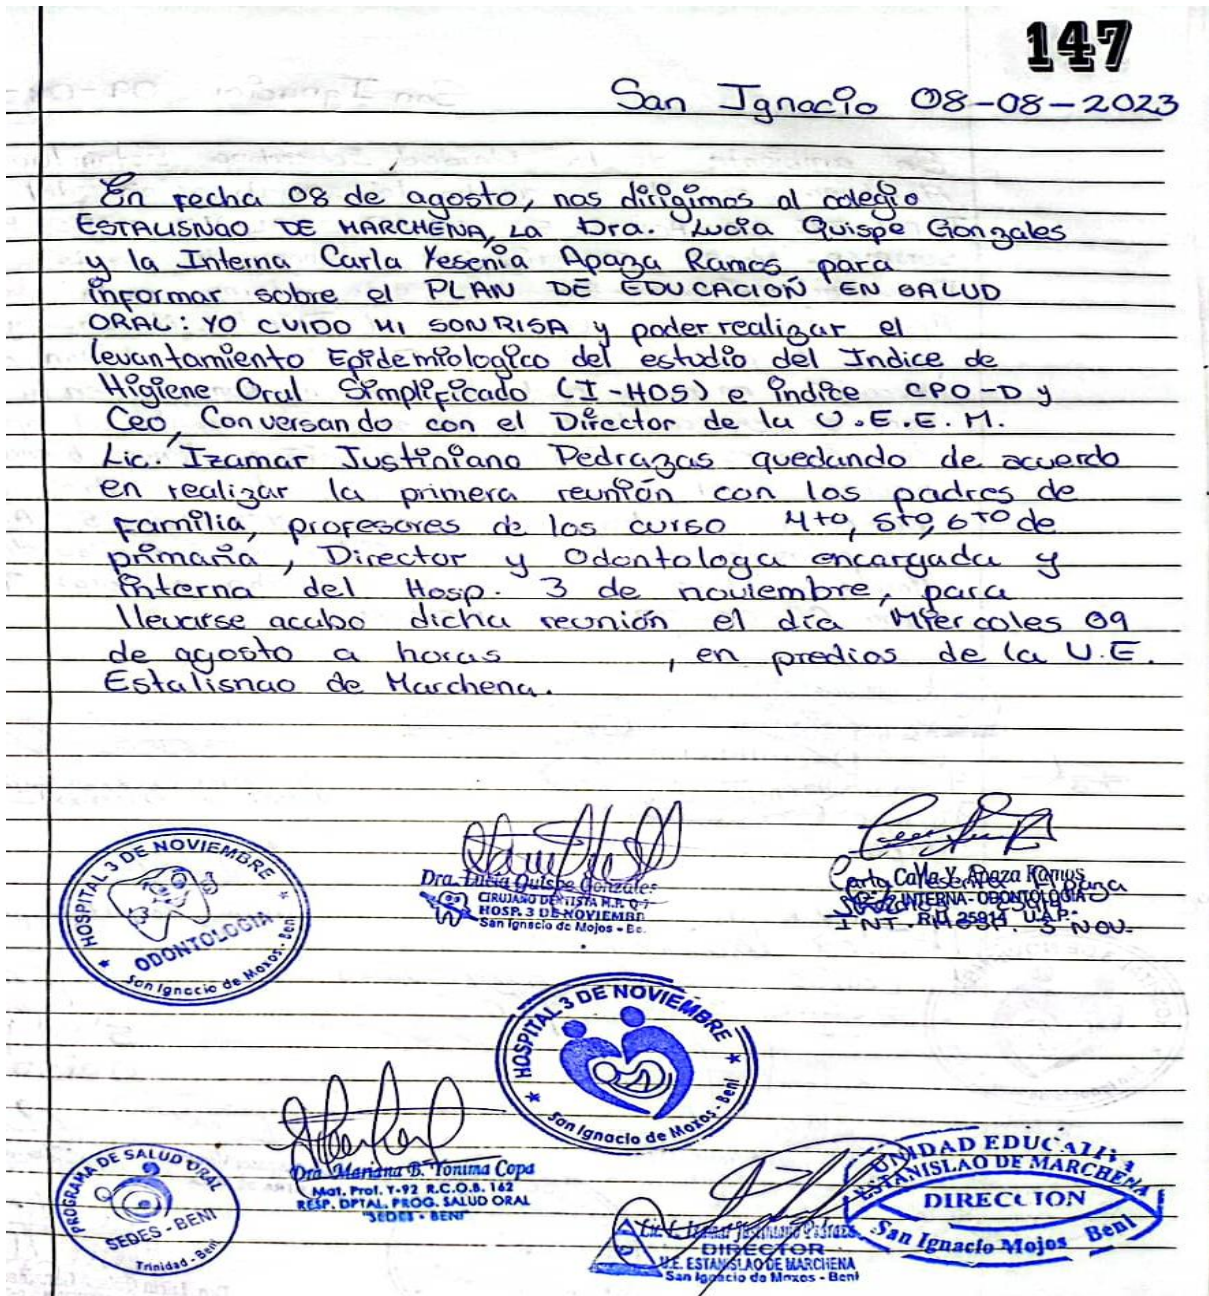 147
San Ignacio 08-08-2023
En fecha 08 de agosto, nos dirigimos al colegio
ESTALISNAO DE MARCHENA, LA Dra. Lucia Quispe Gonzales
y la Interna Carla Yesenia Apaza Ramos para
informar sobre el PLAN DE EDUCACIÓN EN SALUD
ORAL: YO CUIDO MI SONRISA y poder realizar el
levantamiento Epidemiologico del estudio del Indice de
Higiene Oral Simplificado (I-HOS) e indice CPO-D y
Ceo, Conversando con el Director de la U.E.E.M.
Lic. Izamar Justiniano Pedrazas quedando de acuerdo
en realizar la primera reunión con los padres de
familia, profesores de los curso 4to, 5to, 6to de
primaria, Director y Odontologa encargada y
interna del Hosp. 3 de noviembre, para
llevarse acabo dicha reunión el día Miercoles 09
de agosto a horas , en predios de la U.E.
Estalisnao de Marchena.
HOSPITAL 3 DE NOVIEMBRE
ODONTOLOGIA
San Ignacio de Moxos - Beni
Dra. Lucia Quispe Gonzales
CIRUJANO DENTISTA M.P. Q-7
HOSP. 3 DE NOVIEMBRE
San Ignacio de Mojos - Be.
Carla Y. Apaza Ramos
INTERNA - ODONTOLOGIA
INT. HOSP. 3 NOV.
HOSPITAL 3 DE NOVIEMBRE
San Ignacio de Moxos - Beni
PROGRAMA DE SALUD ORAL
SEDES - BENI
Trinidad - Beni
Dra. Mariana B. Tonima Copa
Mat. Prof. T-92 R.C.O.B. 162
RESP. DPTAL. PROG. SALUD ORAL
"SEDES - BENI"
DIRECTOR
U.E. ESTANISLAO DE MARCHENA
San Ignacio de Moxos - Beni
UNIDAD EDUCATIVA
ESTANISLAO DE MARCHENA
DIRECCION
San Ignacio Mojos Beni